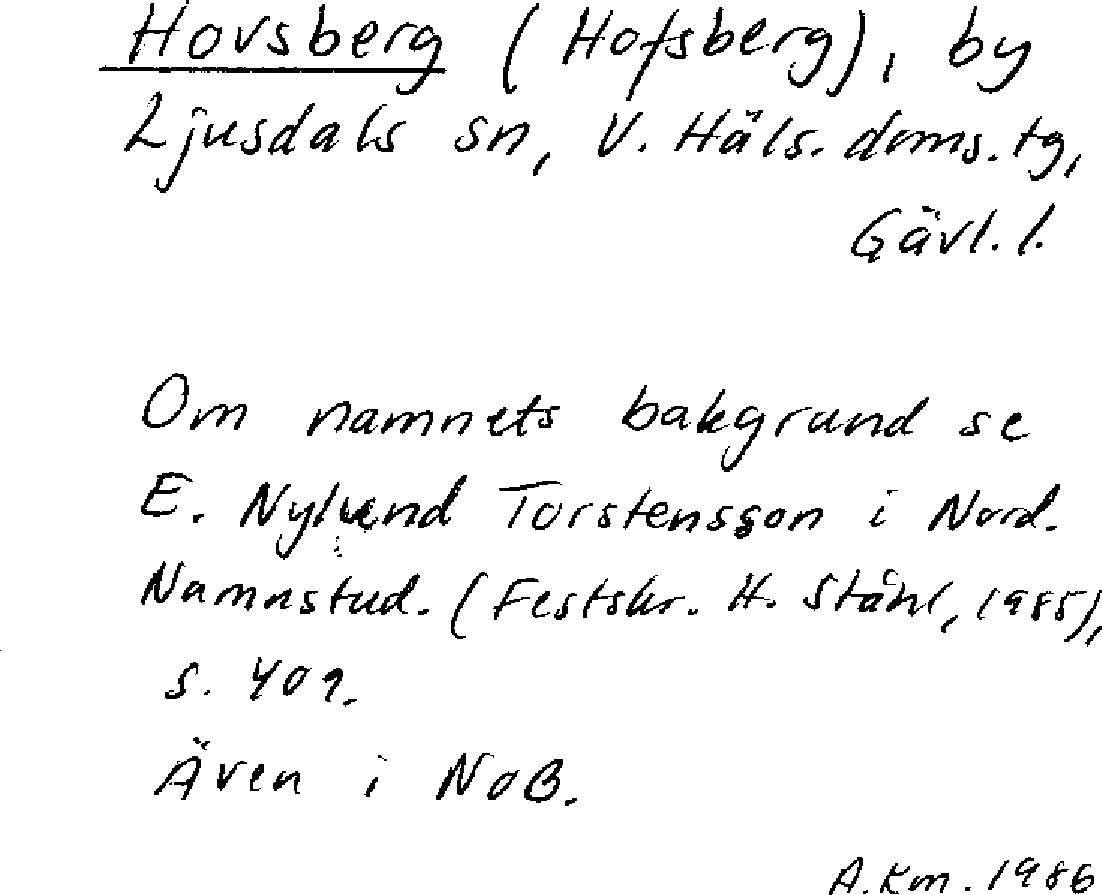 Hovsberg (Hofsberg), by
Ljusdals sn, V. Häls. doms. tg,
Gävl. l.
Om namnets bakgrund se
E. Nylund Torstensson i Nord.
Namnstud. (Festskr. H. Ståhl, 1985),
s. 409.
Även i NoB.
A. Km. 1986